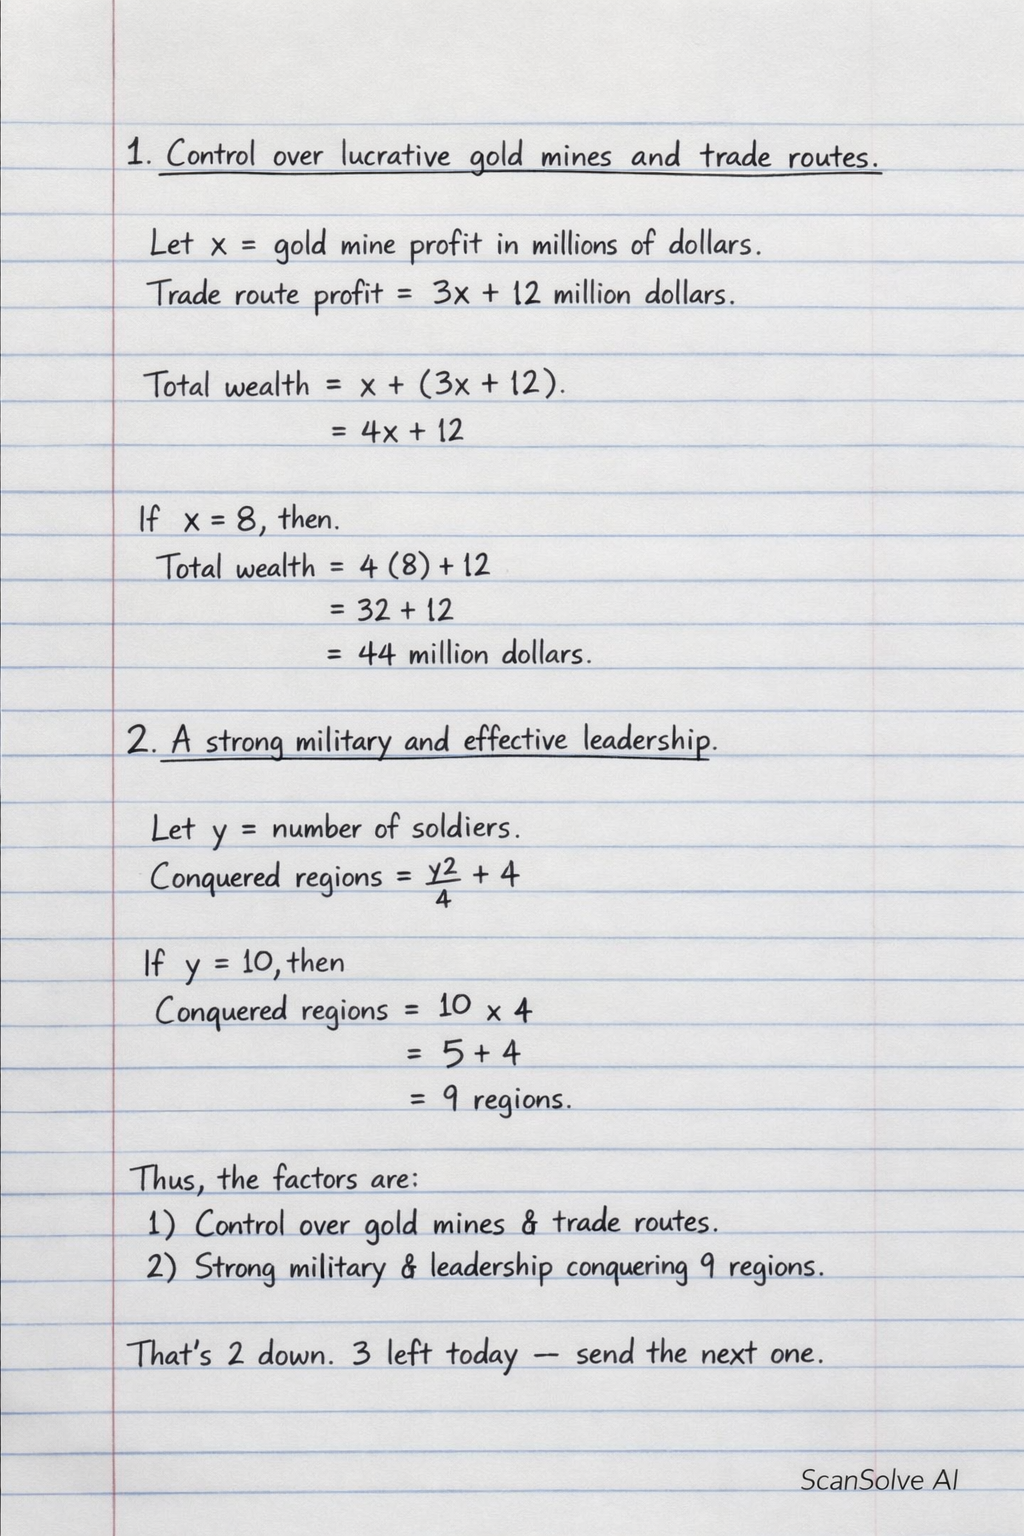 1. Control over lucrative gold mines and trade routes.
Let x = gold mine profit in millions of dollars.
Trade route profit = 3x + 12 million dollars.
Total wealth = x + (3x + 12).
= 4x + 12
If x = 8, then.
Total wealth = 4 (8) + 12
= 32 + 12
= 44 million dollars.
2. A strong military and effective leadership.
Let y = number of soldiers.
Conquered regions = y2/4 + 4
If y = 10, then
Conquered regions = 10 x 4
= 5 + 4
= 9 regions.
Thus, the factors are:
1) Control over gold mines & trade routes.
2) Strong military & leadership conquering 9 regions.
That's 2 down. 3 left today — send the next one.
ScanSolve AI